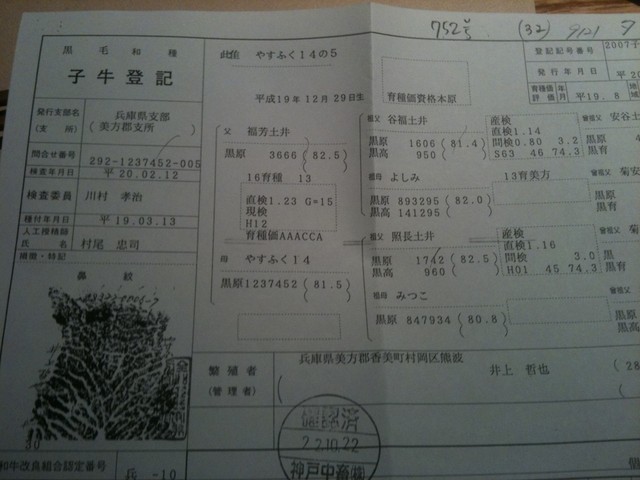 752号 (32) 9/21
黒毛和種
子牛登記
此雌 やすふく14の5
平成19年12月29日生
育種価資格本原
登記記号番号 2007子
発行年月日 平20
育種価評価 年月 平19.8 地域
発行支部名(支所) 兵庫県支部(美方郡支所)
問合せ番号 292-1237452-005
検査年月日 平20.02.12
検査委員 川村 孝治
種付年月日 平19.03.13
人工授精師氏名 村尾 忠司
損徴・特記
鼻紋
30
父 福芳土井
黒原 3666 (82.5)
16育種 13
直検1.23 G=15
現検
H12
育種価AAACCA
母 やすふく14
黒原1237452 (81.5)
祖父 谷福土井
黒原 1606 (81.4)
黒高 950
産検
直検1.14
間検0.80 3.2
S63 46 74.3
祖母 よしみ 13育美方
黒原 893295 (82.0)
黒高 141295
祖父 照長土井
黒原 1742 (82.5)
黒高 960
産検
直検1.16
間検 3.0
H01 45 74.3
祖母 みつこ
黒原 847934 (80.8)
曾祖父 安谷土
黒原
黒育
曾祖父 菊安
黒原
黒育
曾祖父 菊
黒
黒高
曾祖父
黒原
黒高
繁殖者
(管理者)
兵庫県美方郡香美町村岡区熊波
井上 哲也 (28
確認済
22.10.22
神戸中畜㈱
和牛改良組合認定番号 兵 -10